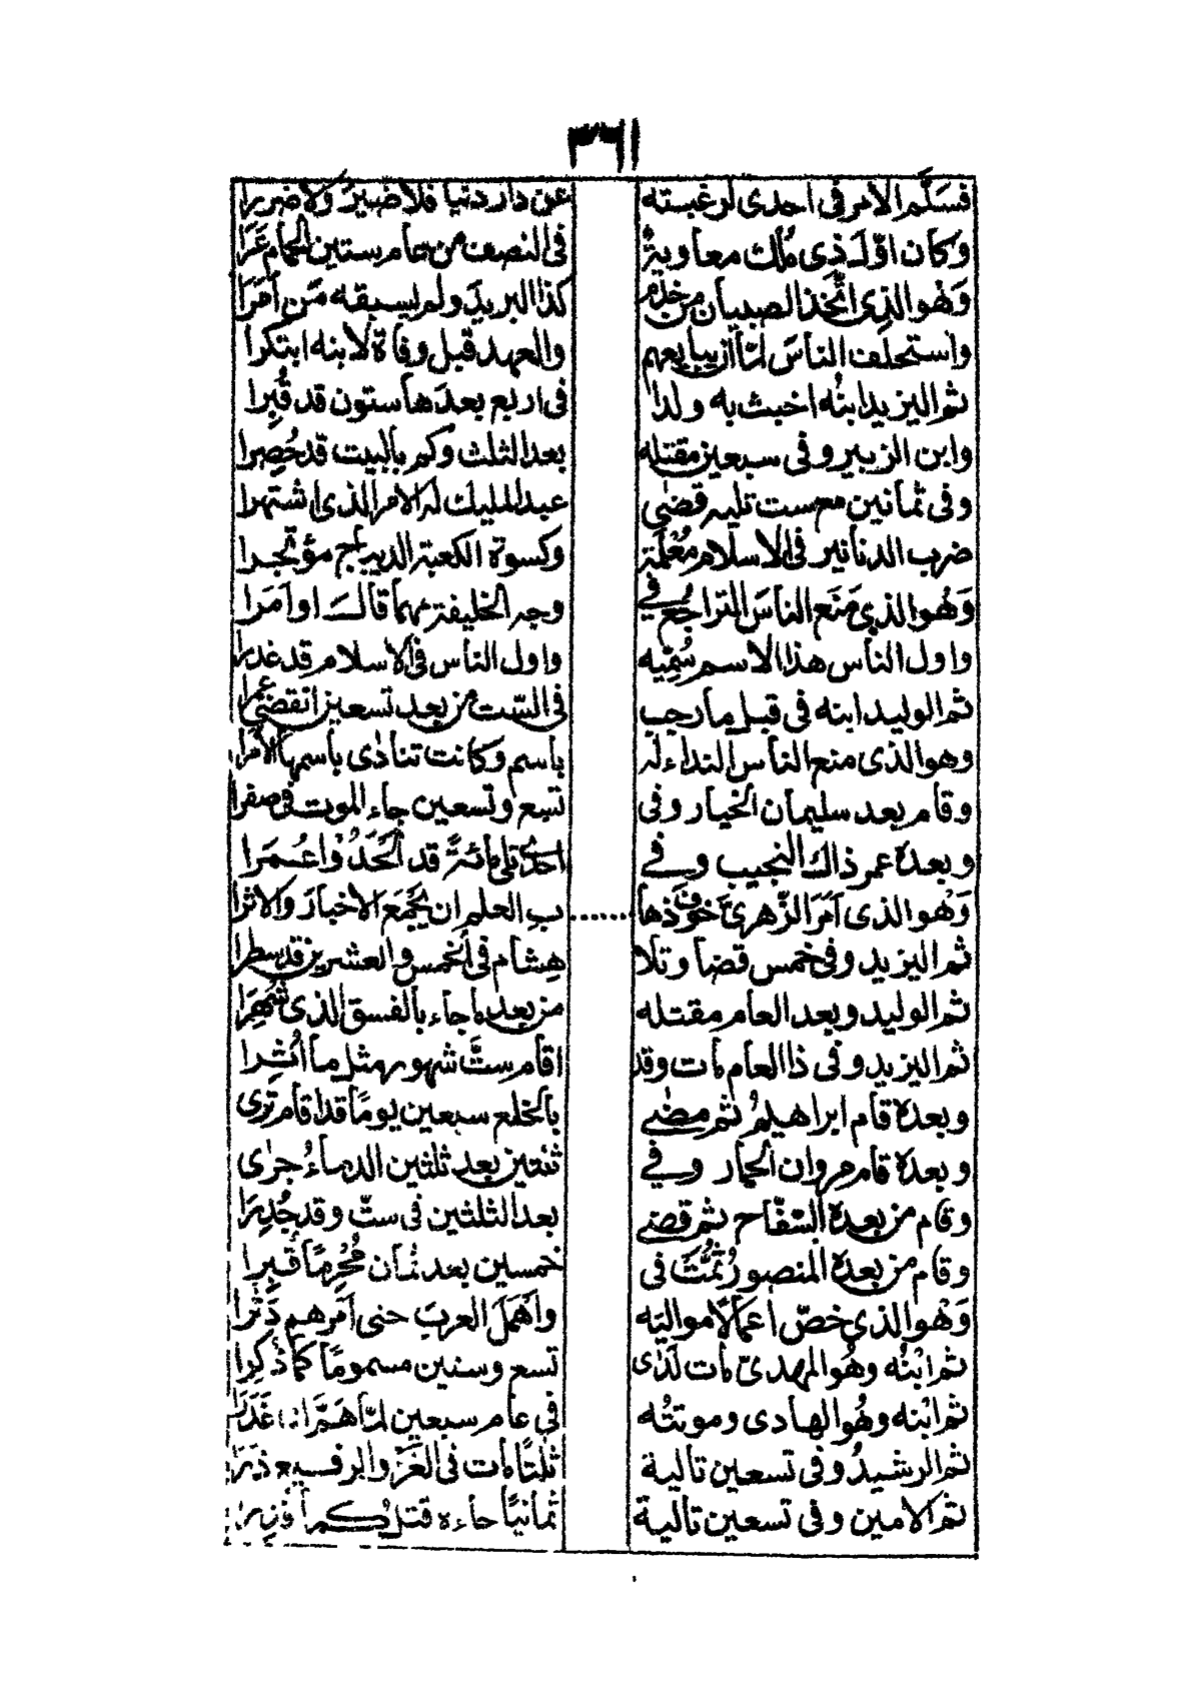 ٣٦١
فسَلَّم الامر فى احدى لرغبته عن دار دنيا فلا ضير ولا ضررا
وكان اوّل ذى مُلك معاوية فى النصف من عام ستين الحمام عَرَا
وَهُو الذِى اتَّخذ الصبيان من خدم كذا البريد ولم يسبقه مَن أَمَرا
واستحلف الناسَ لمّا ان يبايعهم والعهد قبل وفاة لابنه ابتكرا
ثم اليزيد ابنُه اخبث به ولدا فى اربع بعدَها ستون قد قُبِرا
وابن الزبير وفى سبعين مقتله بعد الثلث وكم بالبيت قد حُصِرا
وفى ثمانين مع ست تليه قضى عبد المليك له الامر الذى اشتهرا
ضرب الدنانير فى الاسلام مُعْلَمة وكسوة الكعبة الديباج مؤتجرا
وَهُو الذِى مَنَع الناسَ التراجُع فى وجه الخليفة مهما قال او اَمَرا
واول الناس هذا الاسم سُمّيه واول الناس فى الاسلام قد غدرا
ثم الوليد ابنه فى قبل ما رجب فى السّت من بعد تسعين انقضى عمرا
وهو الذى منع الناس النداء له باسم وكانت تنادى باسمها الامرا
وقام بعد سليمان الخيار وفى تسع وتسعين جاء الموت فى صفرا
وبعده عمر ذاك النجيب وفى احدى تلى مائةً قد الحَدُوا عُمَرا
وَهُو الذى اَمَرَ الزّهرىَّ خوفَ ذها......بِ العلم ان يَجْمَعَ الاخبارَ والاثرا
ثم اليزيد وفى خمس قضا وتلا هِشام فى الخمس والعشرين قد سطرا
ثم الوليد وبعد العام مقتله من بعد ما جاء بالفسق الذى شُهِرَا
ثم اليزيد وفى ذا العام مات وقد اقام ستَّ شهور مثل ما اُثِرا
وبعده قام ابراهيمُ ثم مضى بالخلع سبعين يومًا قد اقام ترى
وبعده قام مروان الحمار وفى ثنتين بعد ثلثين الدماءُ جرى
وقام من بعده السّفّاح ثم قضى بعد الثلثين فى ستّ وقد جُدِرَا
وقام من بعده المنصور ثُمَّت فى خمسين بعد ثمان مُحْرِمًا قُبِرا
وَهُو الذى خصّ اعمالًا مواليَه واَهْمَلَ العربَ حتى اَمرهم دَثَرا
ثم ابْنُه وهُو المهدىّ مات لَدٰى تسع وستين مسمومًا كما ذُكِرا
ثم ابْنه وهُو الهادى وموتتُه فى عام سبعين لمّا هَمَّ ان غَدَرا
ثم الرشيدُ وفى تسعين تالية ثلثًا مات فى الغزو الرفيع ذرَا
ثم الامين وفى تسعين تالية ثمانيًا جاءه قتل كما قُدِرَا